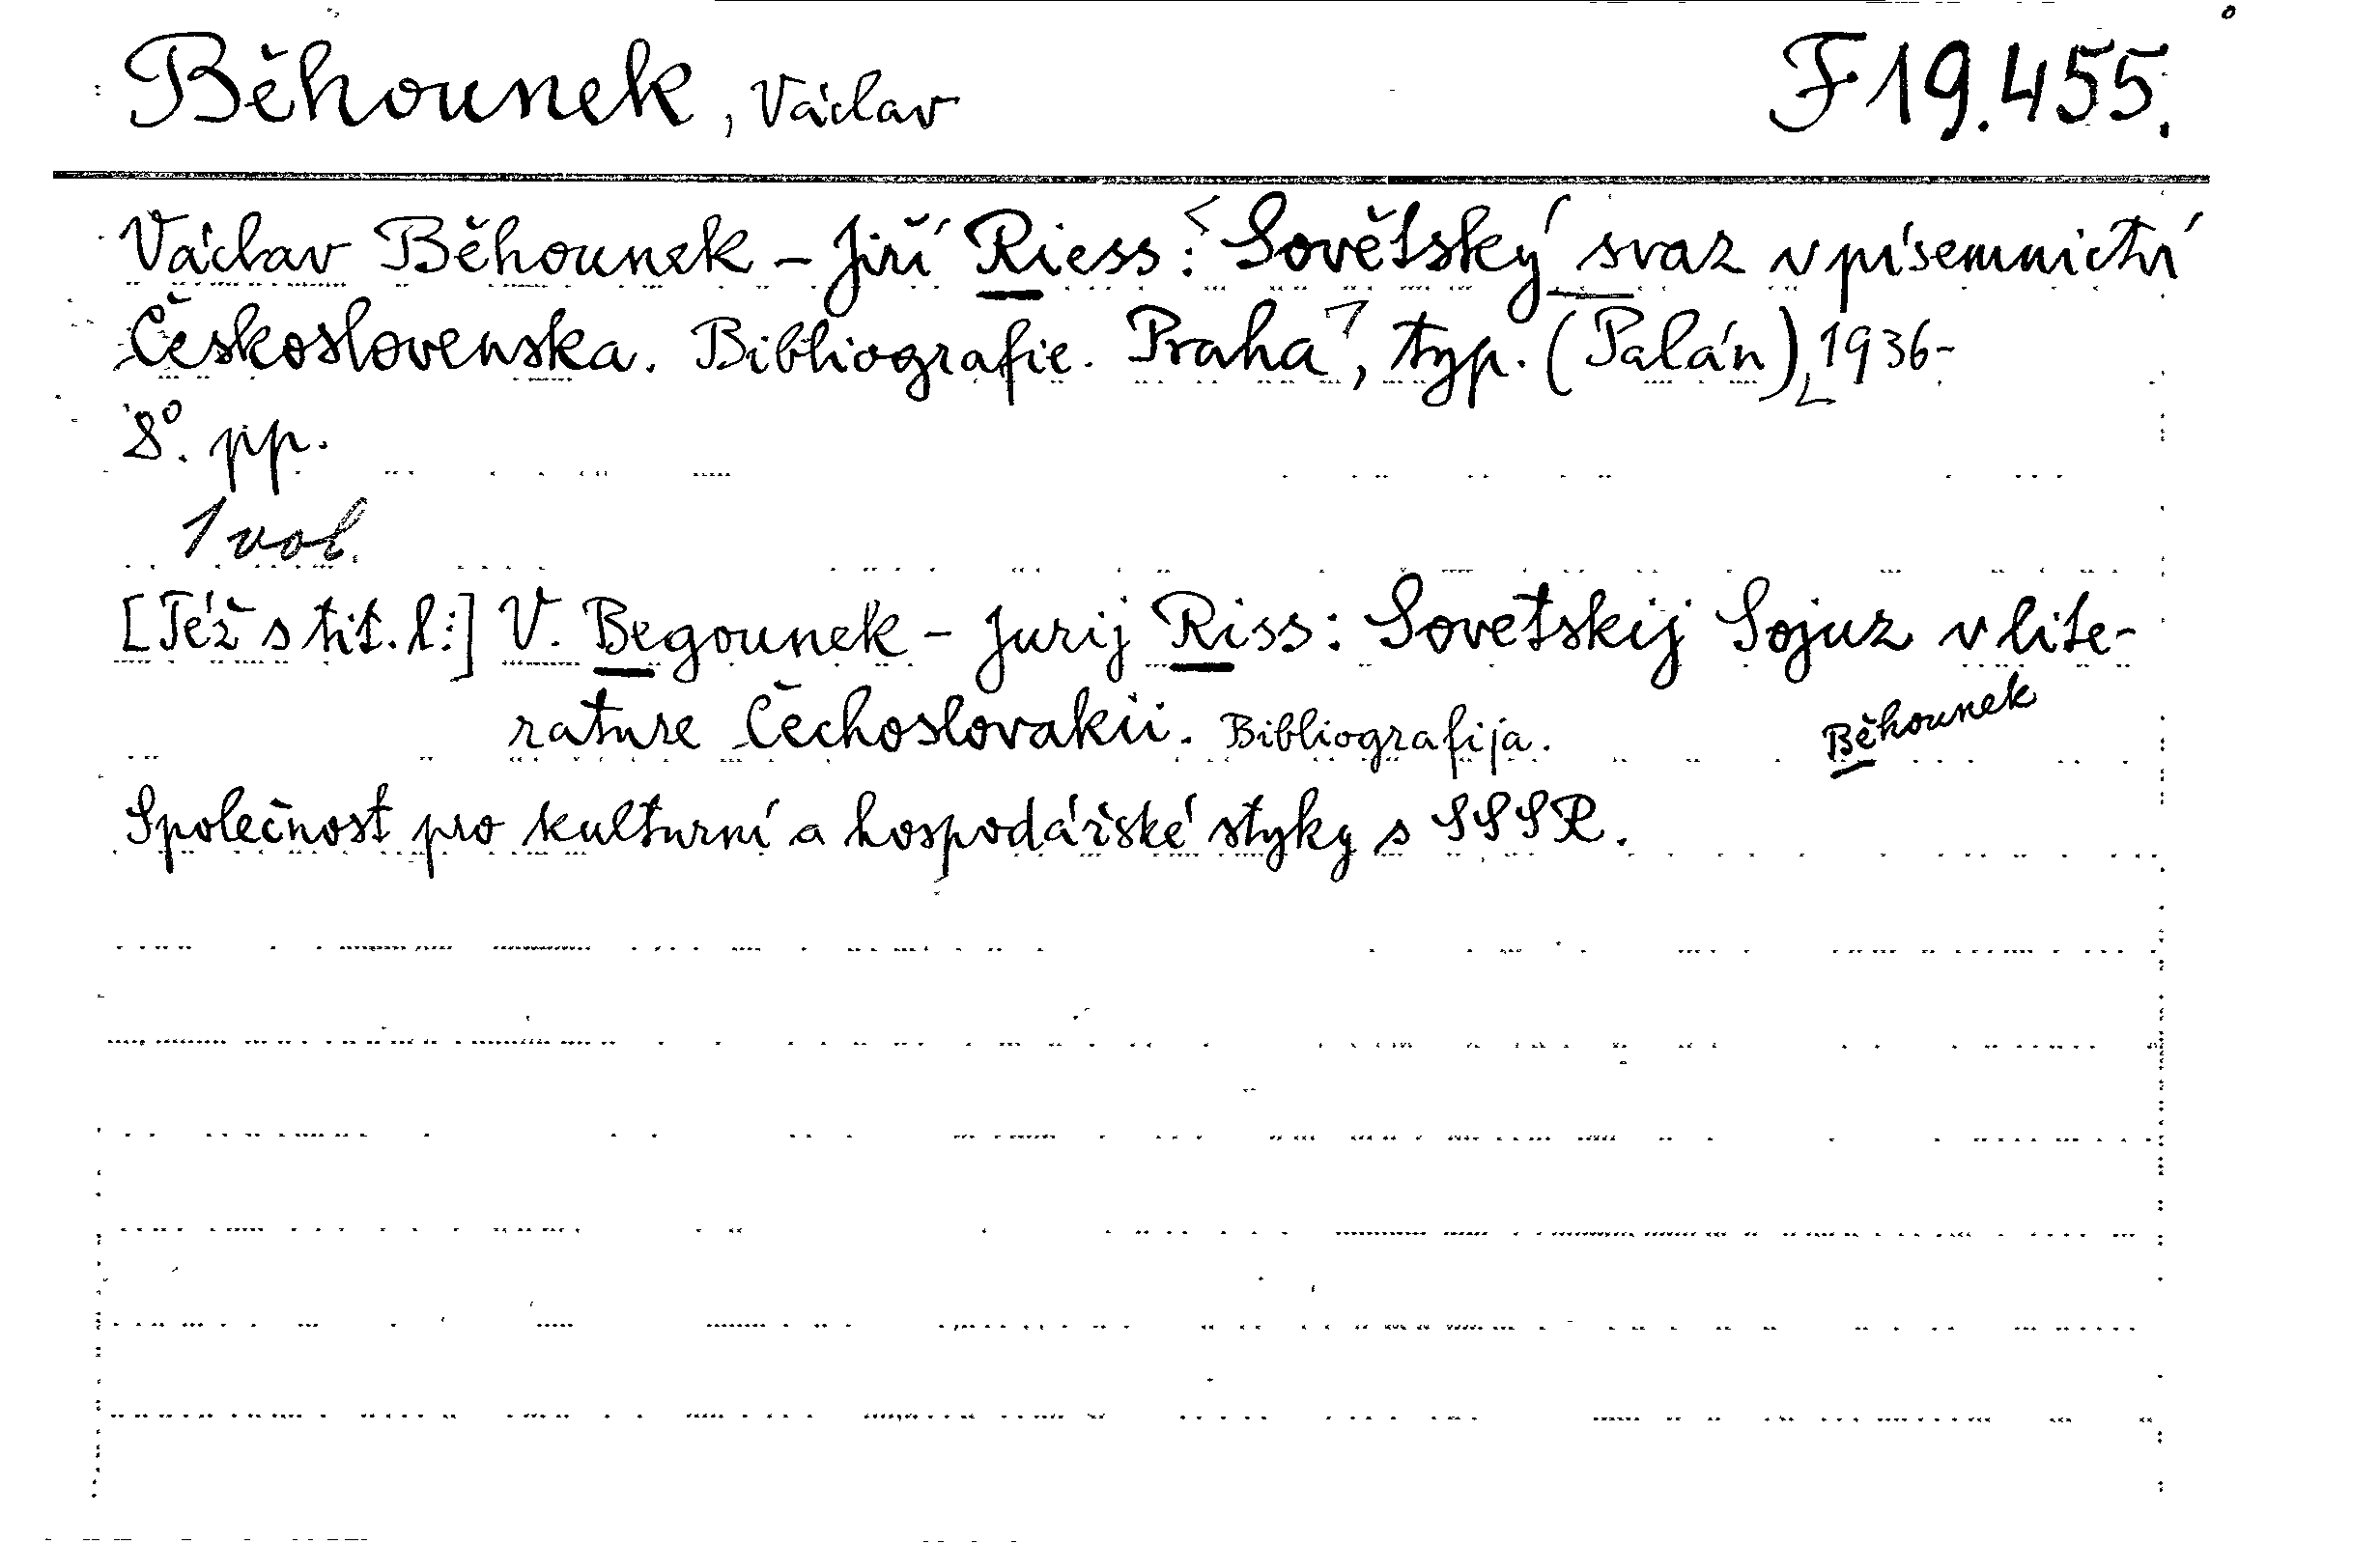 Běhounek, Václav F 19.455.
Václav Běhounek – Jiří Riess: Sovětský svaz v písemnictví
Československa. Bibliografie. Praha, typ. (Palán), 1936-
8°. pp.
1 vol.
[Též s tit. l.:] V. Begounek – Jurij Riss: Sovetskij Sojuz v lite-
rature Čechoslovakii. Bibliografija. Běhounek
Společnost pro kulturní a hospodářské styky s SSSR.